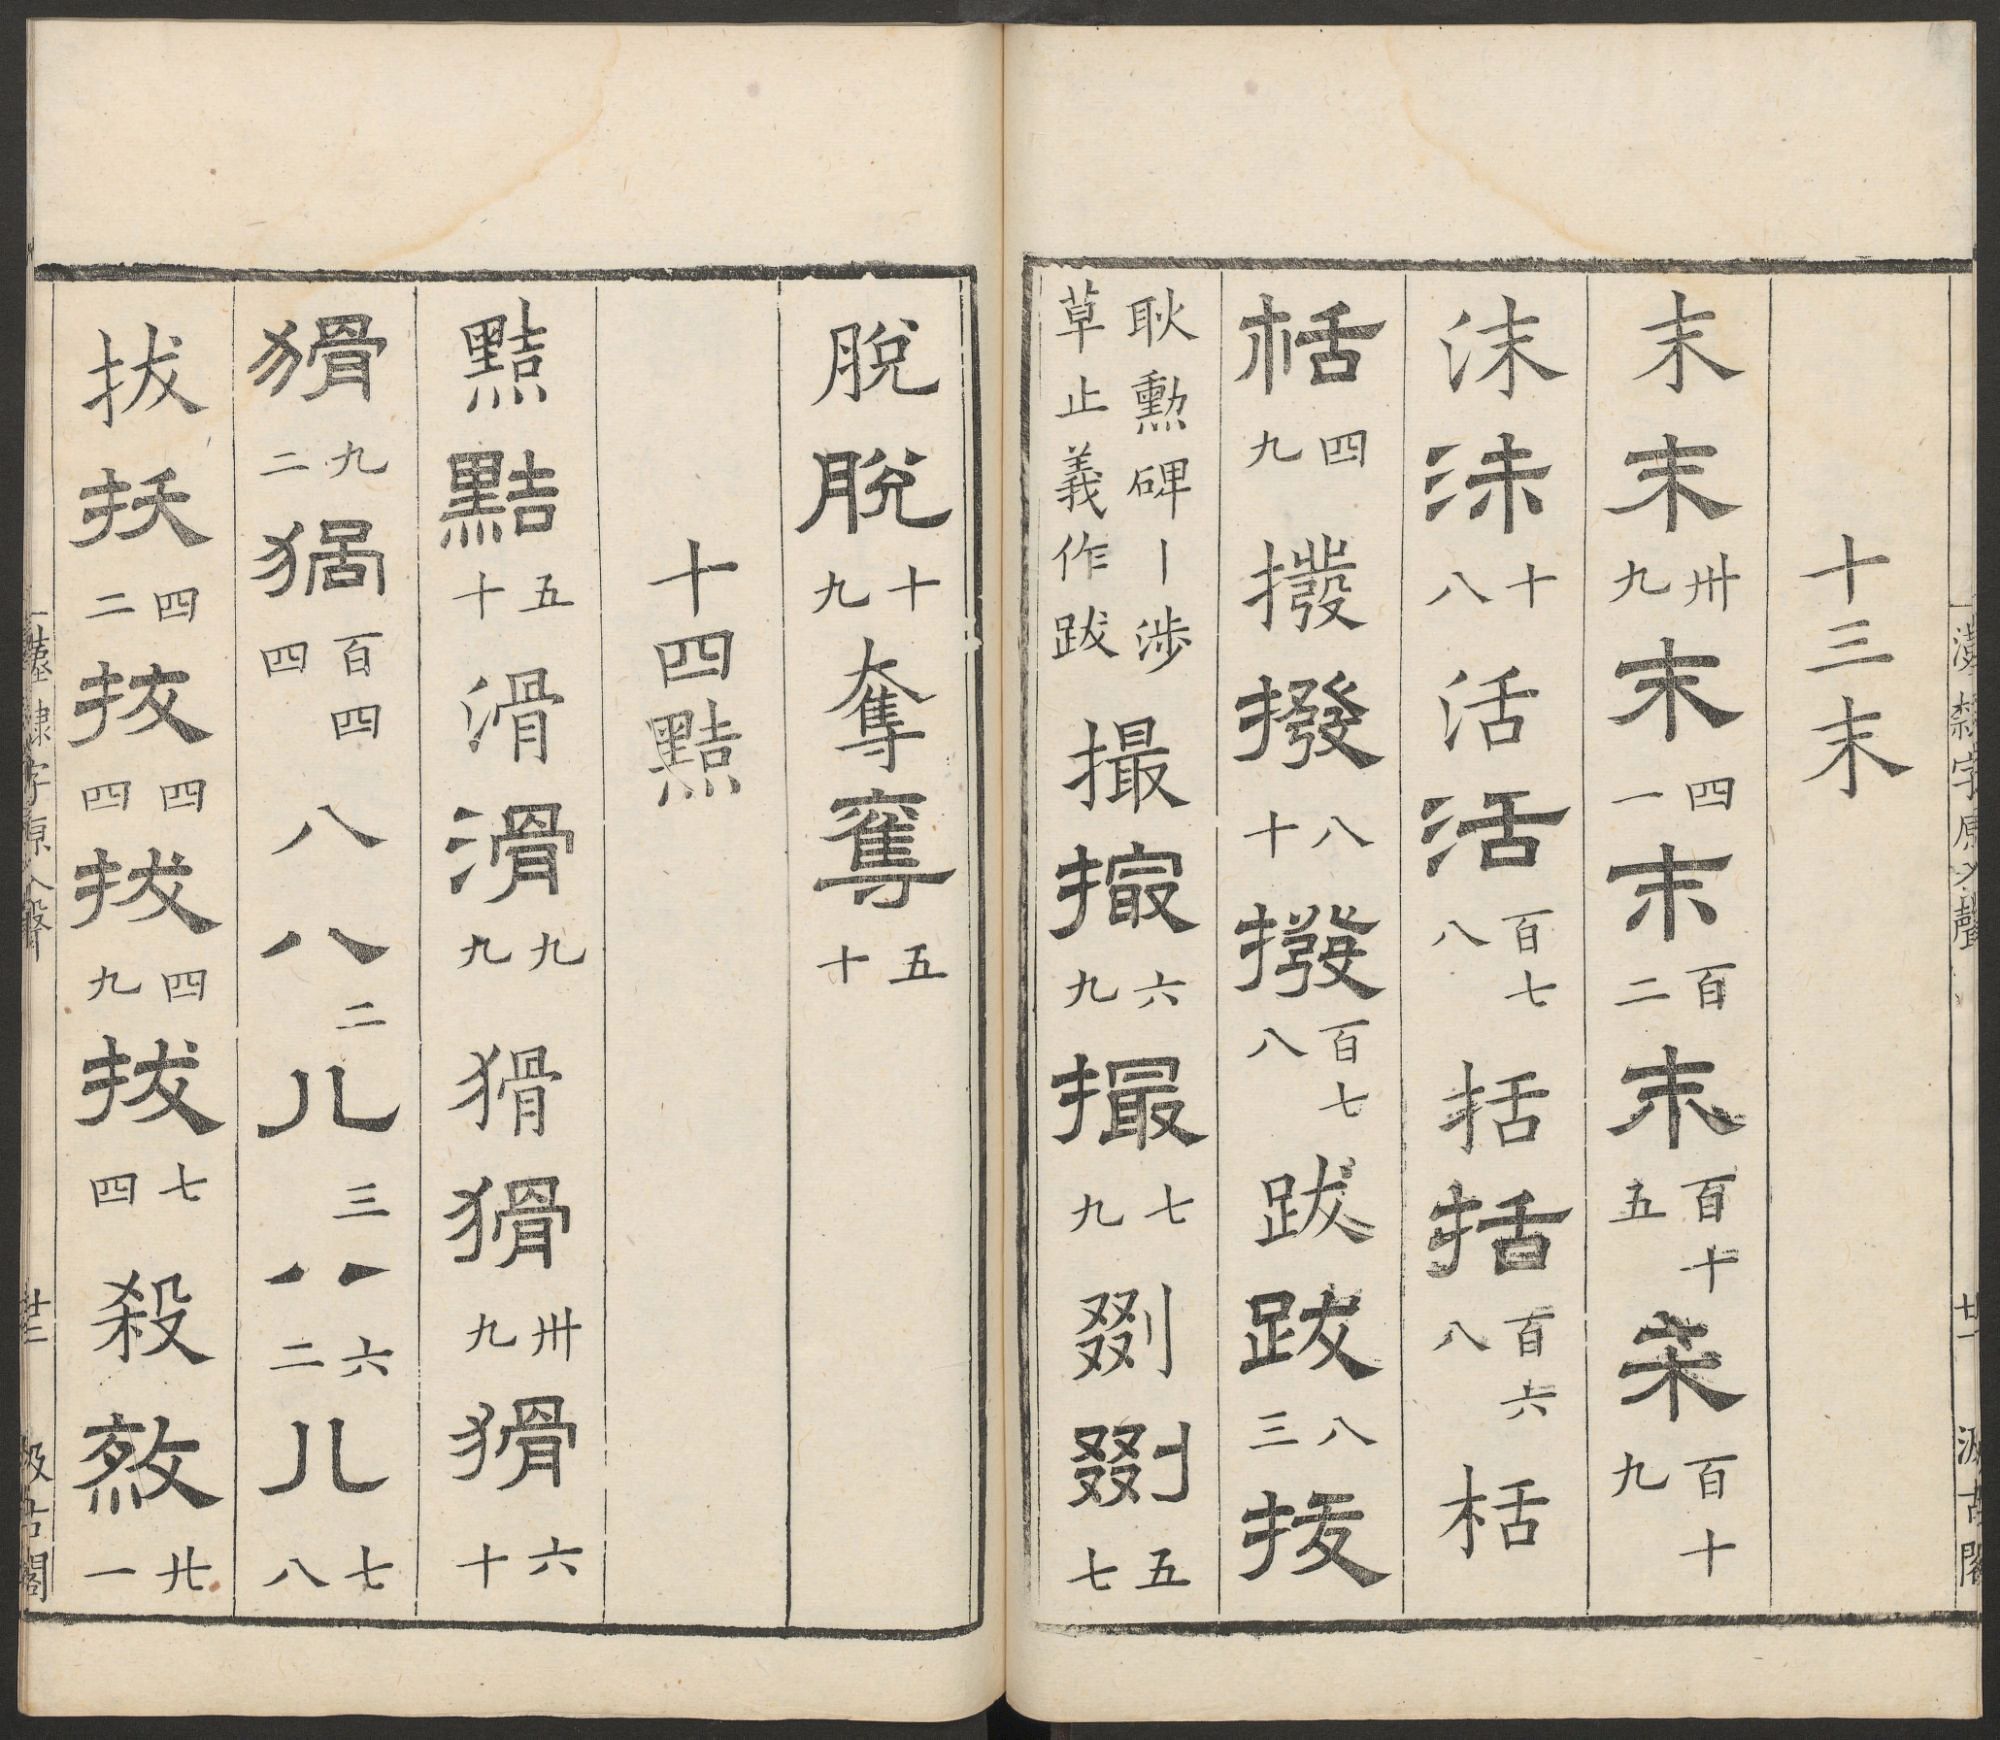 漢隸字原入聲 廿一 汲古閣
十三末
末末卅九末四一末百二末百十五末百十九
沫沫十八活活百七八括括百六八栝
栝四九撥撥八十撥百七八跋跋八三拔
耿勳碑丨涉草止義作跋撮撮六九撮七九剟剟五七
脫脫十九奪奪五十
十四黠
黠黠五十滑滑九九猾猾卅九猾六十
猾九二猾百四四八八二八三八六二八七八
拔拔四二拔四四拔四九拔七四殺殺廿一
漢隸字原入聲 廿二 汲古閣